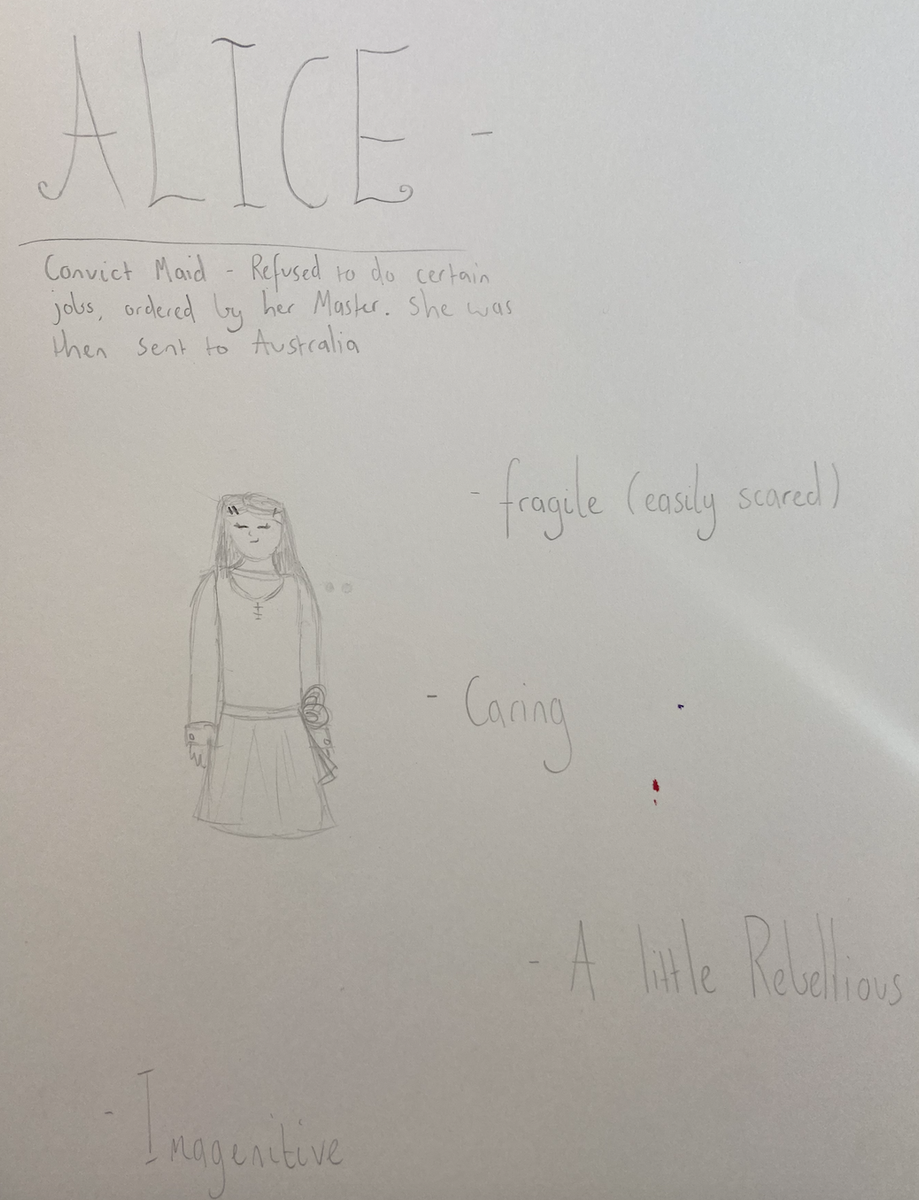 ALICE -
Convict Maid - Refused to do certain
jobs, ordered by her Master. She was
then sent to Australia
- fragile (easily scared)
- Caring
- A little Rebellious
- Imagenitive